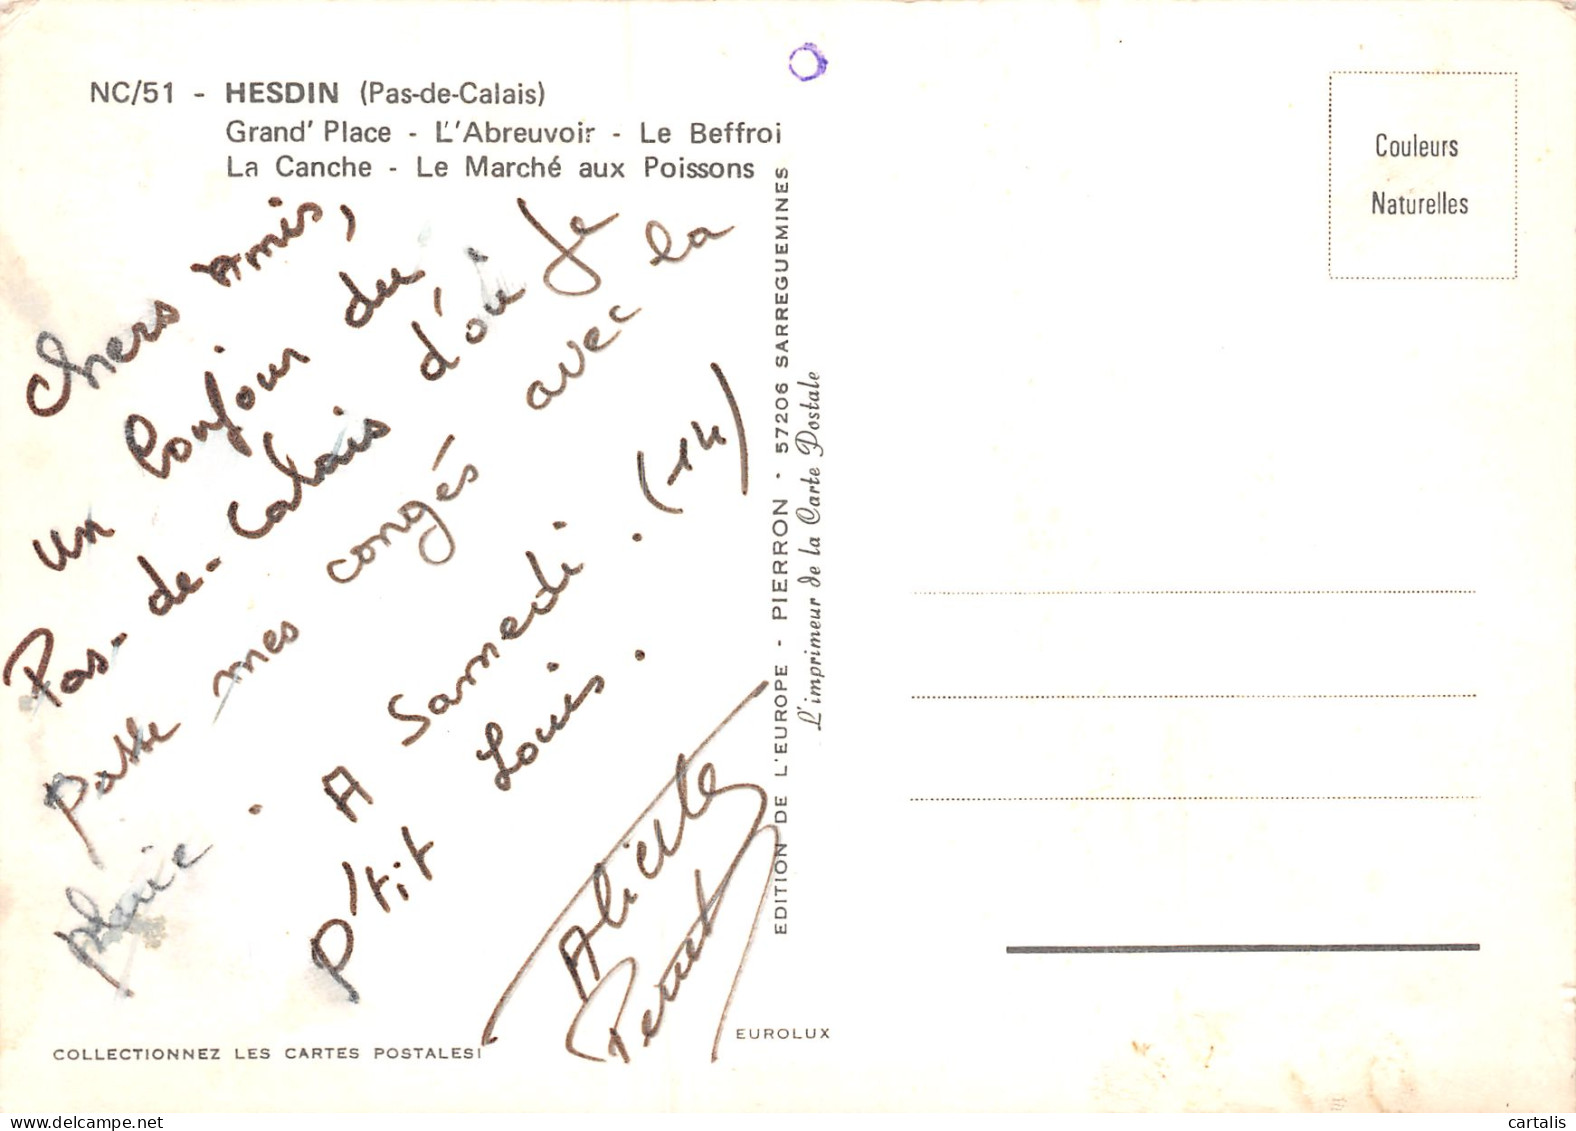 NC/51 - HESDIN (Pas-de-Calais)
Grand' Place - L''Abreuvoir - Le Beffroi
La Canche - Le Marché aux Poissons
Chers Amis,
un bonjour du
Pas-de-Calais d'où je
passe mes congés avec la
pluie. A Samedi. (14)
p'tit Louis.
COLLECTIONNEZ LES CARTES POSTALES!
EDITION DE L'EUROPE - PIERRON - 57206 SARREGUEMINES
L'imprimeur de la Carte Postale
EUROLUX
Couleurs
Naturelles
cartalis